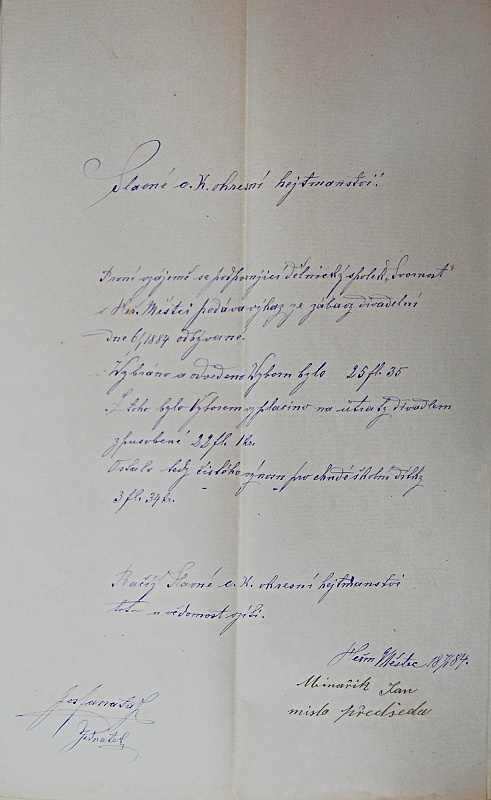 Slavné c. K. okresní hejtmanství!
První vzájemě se podporující dělnický spolek „Svornost“
v Heř. Městci podáva výkaz ze zábavy divadelní
dne 6/1 1884 odbývané.
Vybráno a odvedeno Výborem bylo 25 fl. 35
Z toho bylo Výborem vyplaceno na útraty divadlem
způsobené 22 fl. 1 kr.
Ostalo tedy čistého výnosu pro chudé školní dítky
3 fl. 34 kr.
Račiž Slavné c. K. okresní hejtmanství
toto u vědomost vzíti.
Heřm Městec 18/1 84.
Minařík Jan
místo předseda
Jednatel